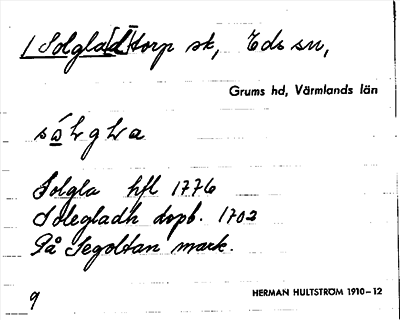 / Solgla[d]torp sk, Eds sn,
Grums hd, Värmlands län
Solgla hfl 1776
Solegladh dopb. 1702
På Segoltan mark.
9
HERMAN HULTSTRÖM 1910-12